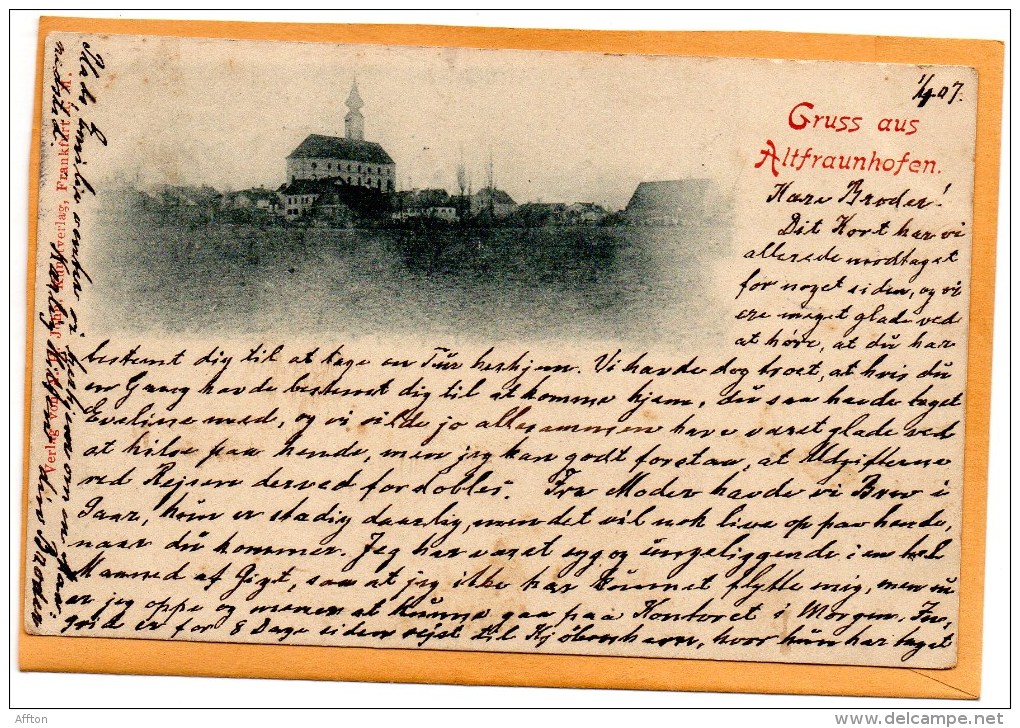 1/4 07.
Gruss aus
Altfraunhofen.
Kære Broder!
Dit Kort har vi
allerede modtaget
for noget siden, og vi
ere meget glade ved
at høre, at du har
bestemt dig til at tage en Tur herhjem. Vi havde dog troet, at hvis du
en Gang havde bestemt dig til at komme hjem, du saa havde taget
Eveline med, og vi vilde jo allesammen have været glade ved
at hilse paa hende, men jeg kan godt forstaa, at Udgifterne
ved Rejsen derved fordobles. Fra Moder havde vi Brev i
Gaar, hun er stadig daarlig, men det vil nok live op paa hende,
naar du kommer. Jeg har været syg og sengeliggende i en hel
Maaned af Gigt, saa at jeg ikke har kunnet flytte mig, men nu
er jeg oppe og mener at kunne gaa paa Kontoret i Morgen. In-
er for 8 Dage siden rejst til Kjøbenhavn, hvor hun har taget
Plads
Broder
Verlag von H. Kunstverlag, Frankfurt
Affton
www.delcampe.net